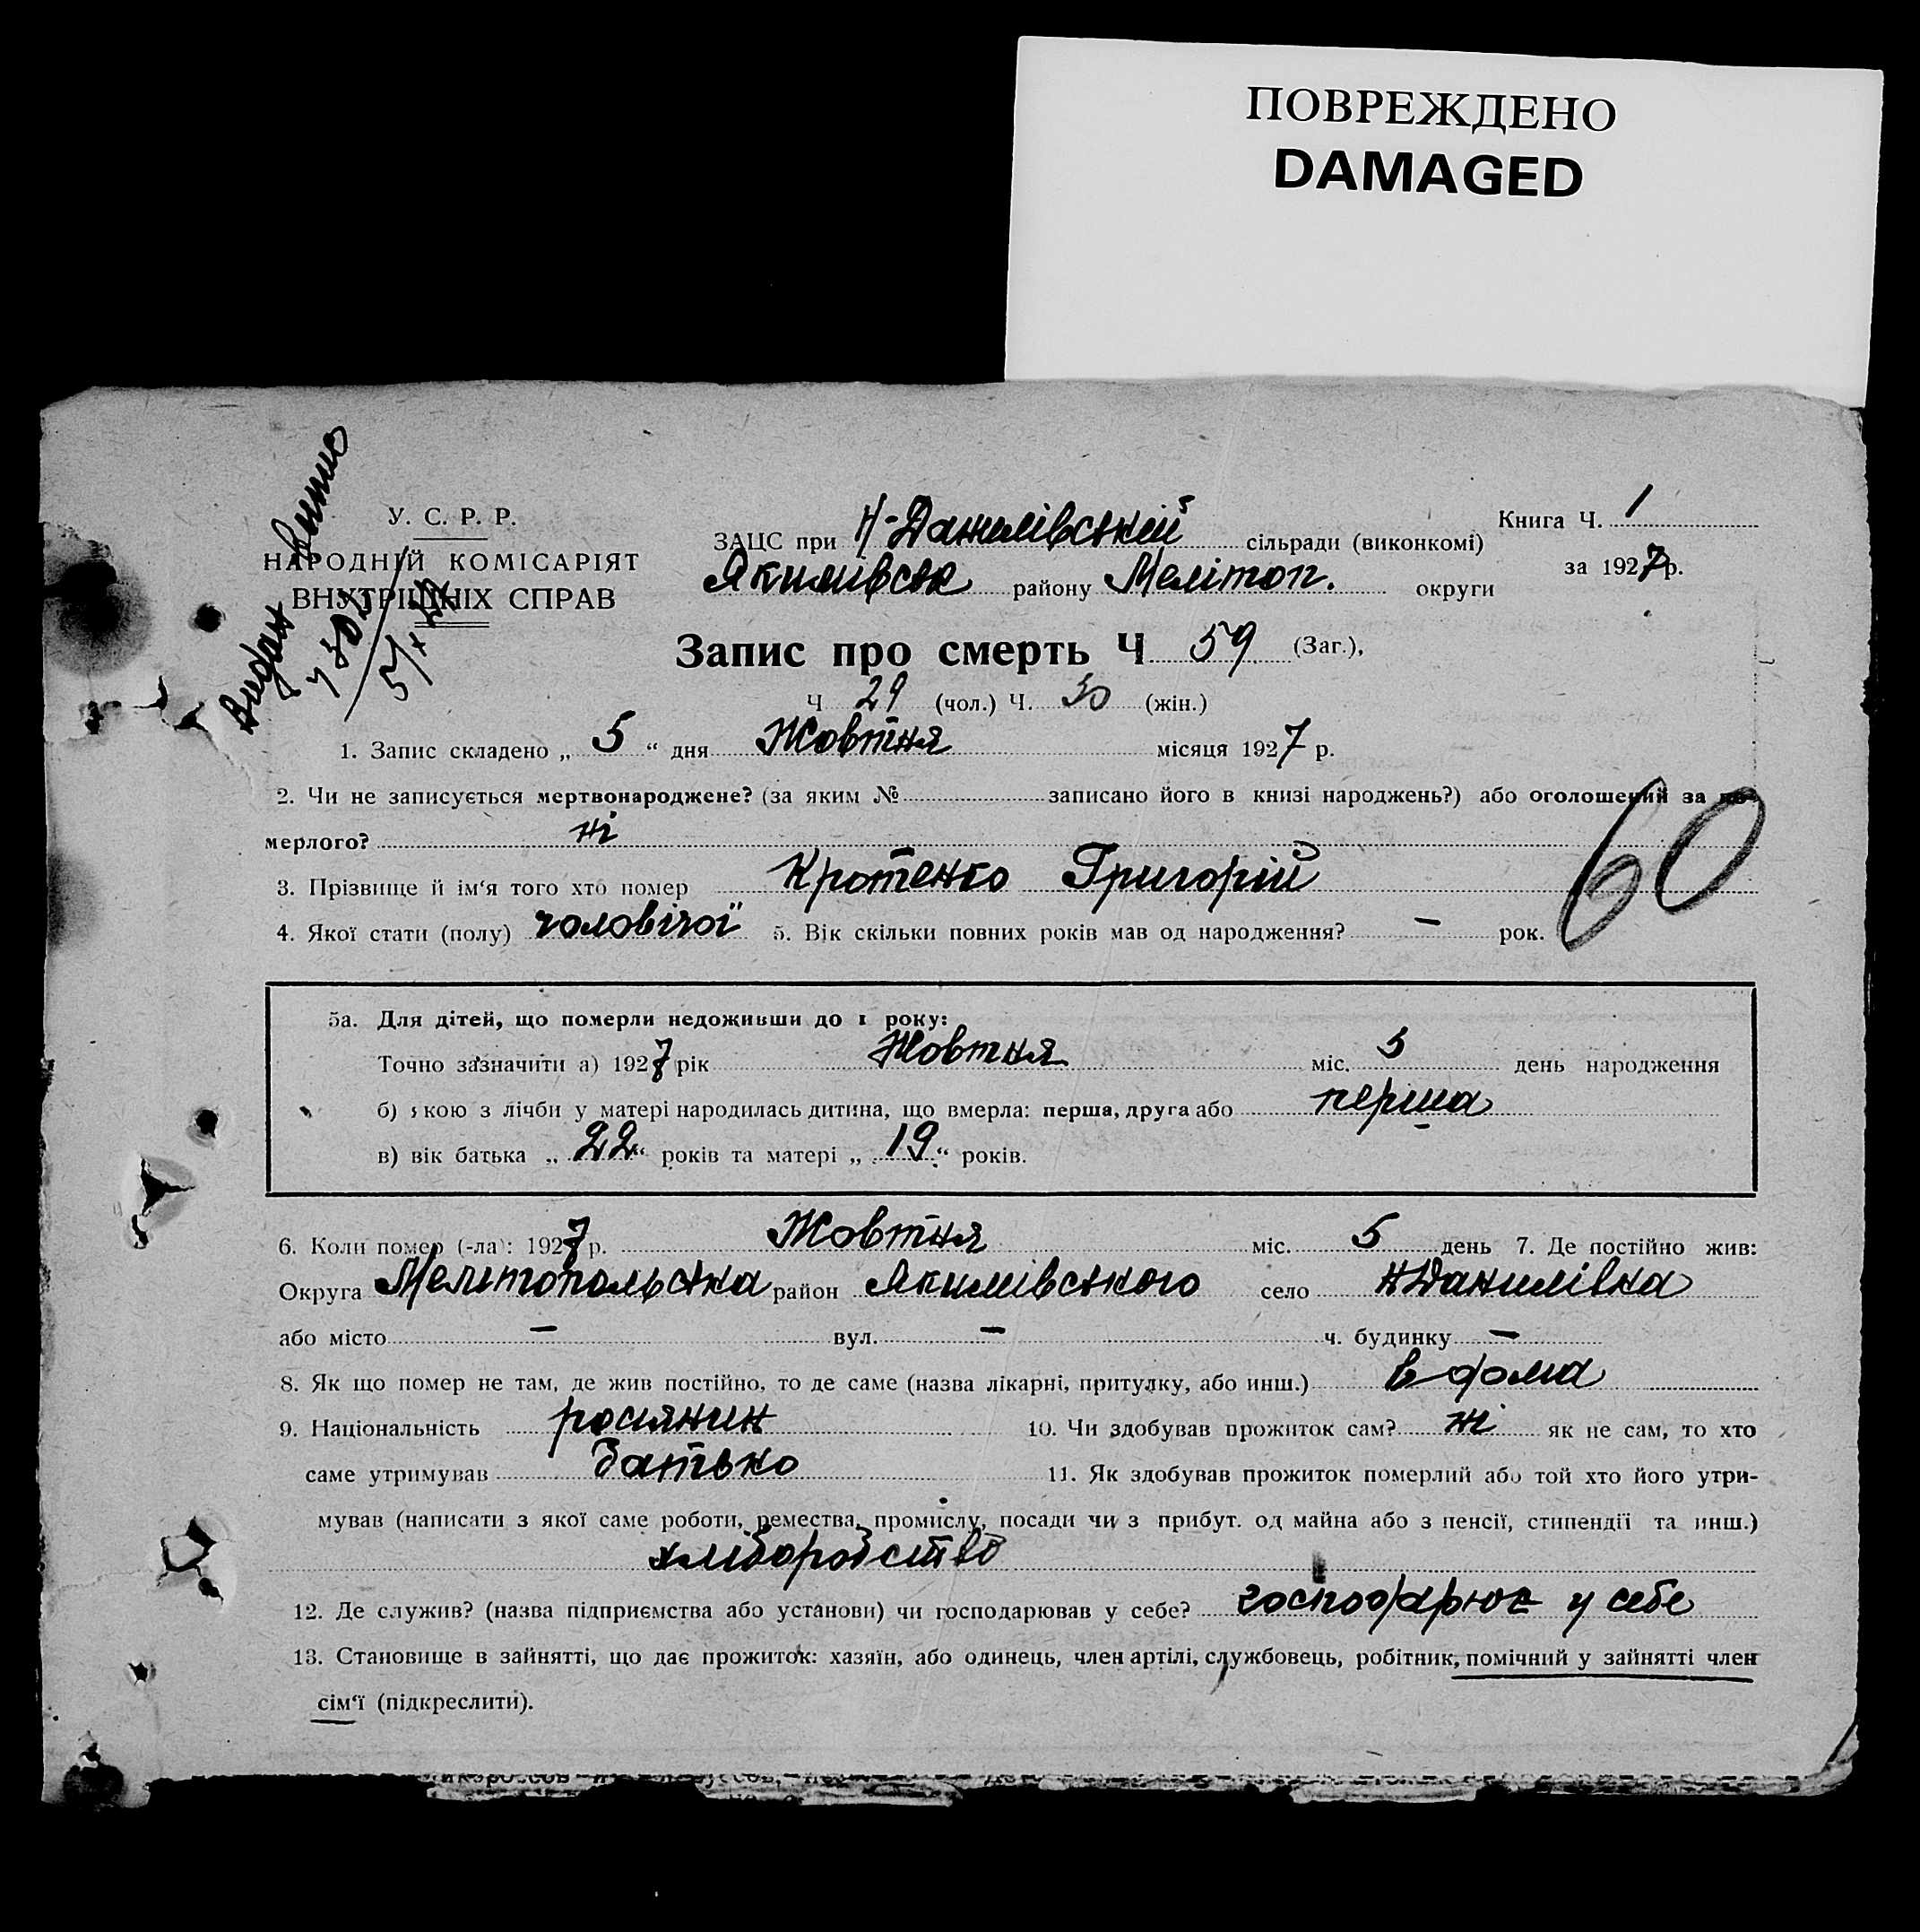 ПОВРЕЖДЕНО
DAMAGED
Видан Випис
5/X 27
У. С. Р. Р.
НАРОДНІЙ КОМІСАРІЯТ
ВНУТРІШНІХ СПРАВ
ЗАЦС при Н-Данилівській сільради (виконкомі)
Якимівськ району Мелітоп. округи
Книга Ч. 1
за 1927 р.
Запис про смерть Ч 59 (Заг.),
Ч 29 (чол.) Ч. 30 (жін.)
1. Запис складено „ 5 “ дня Жовтня місяця 1927 р.
2. Чи не записується мертвонароджене? (за яким № записано його в книзі народжень?) або оголошений за по-
мерлого? ні
60
3. Прізвище й ім‘я того хто помер Кротенко Григорій
4. Якої стати (полу) чоловічої 5. Вік скільки повних років мав од народження? — рок.
5а. Для дітей, що померли недоживши до 1 року:
Точно зазначити а) 1927 рік Жовтня міс. 5 день народження
б) якою з лічби у матері народилась дитина, що вмерла: перша, друга або перша
в) вік батька „ 22 “ років та матері „ 19 “ років.
6. Коли помер (-ла): 1927 р. Жовтня міс. 5 день 7. Де постійно жив:
Округа Мелітопольська район Якимівського село Н Данилівка
або місто — вул. — ч. будинку —
8. Як що помер не там, де жив постійно, то де саме (назва лікарні, притулку, або инш.) в дома
9. Національність росіянин 10. Чи здобував прожиток сам? ні як не сам, то хто
саме утримував Батько 11. Як здобував прожиток померлий або той хто його утри-
мував (написати з якої саме роботи, ремества, промислу, посади чи з прибут. од майна або з пенсії, стипендії та инш.)
хліборобство
12. Де служив? (назва підприємства або установи) чи господарював у себе? господарює у себе
13. Становище в зайнятті, що дає прожиток: хазяїн, або одинець, член артілі, службовець, робітник, помічний у зайнятті член
сім‘ї (підкреслити).